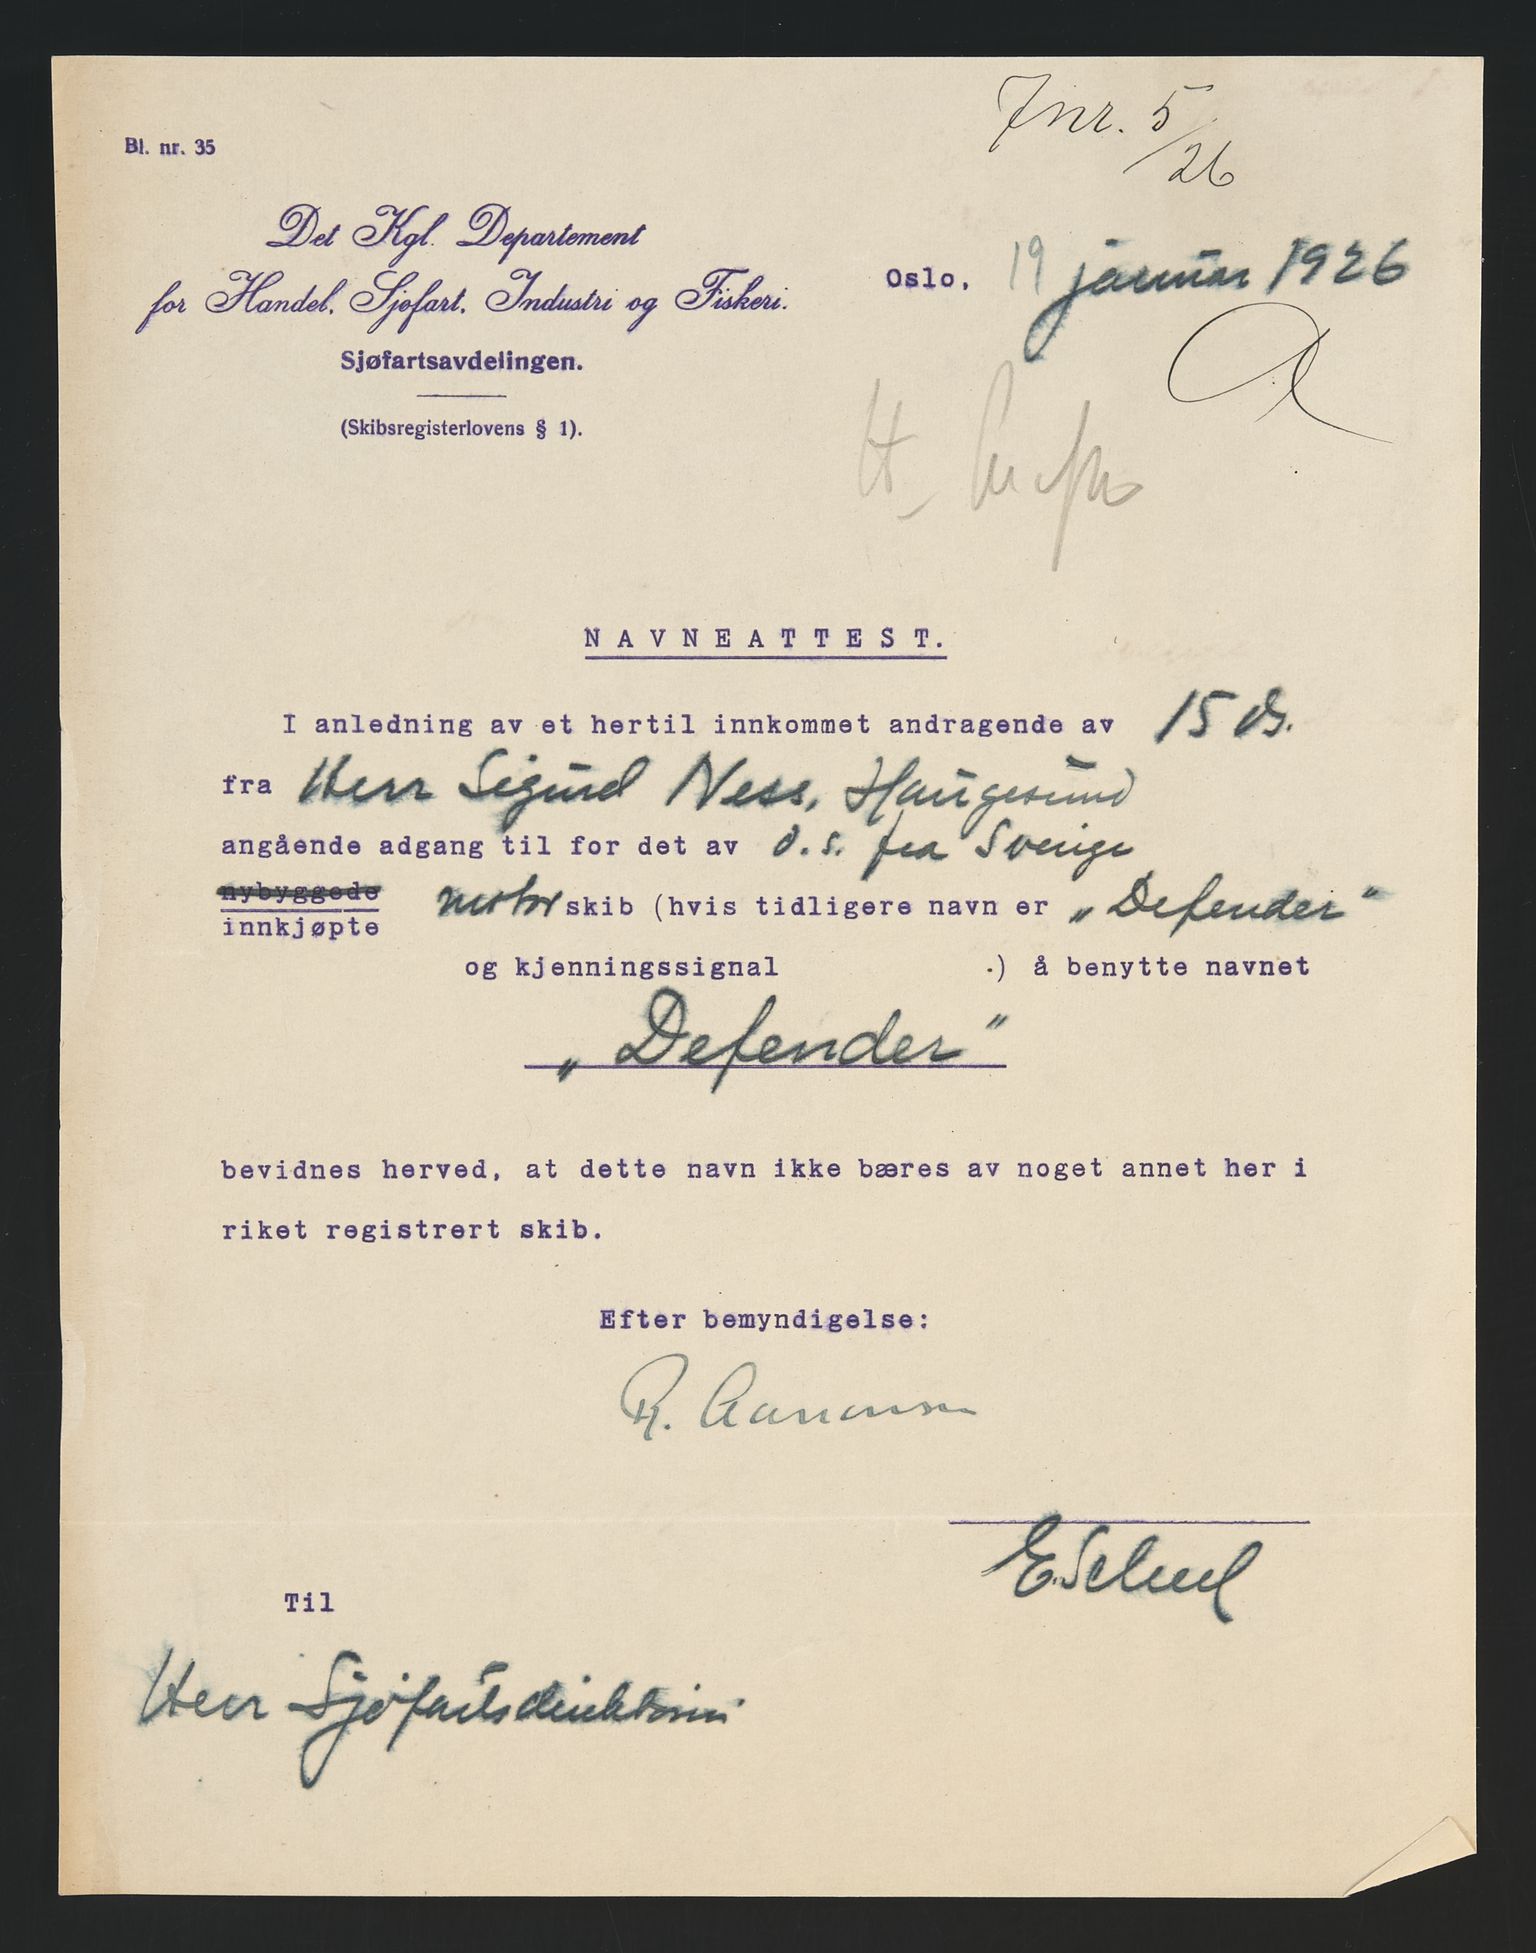 Jnr. 5/26
Bl. nr. 35
Det Kgl. Departement
for Handel, Sjøfart, Industri og Fiskeri.
Oslo, 19 januar 1926
Sjøfartsavdelingen.
(Skibsregisterlovens § 1).
NAVNEATTEST.
I anledning av et hertil innkommet andragende av 15 ds.
fra Herr Sigurd Ness, Haugesund
angående adgang til for det av d.s. fra Sverige
nybyggede
innkjøpte motor skib (hvis tidligere navn er „Defender"
og kjenningssignal .) å benytte navnet
„Defender"
bevidnes herved, at dette navn ikke bæres av noget annet her i
riket registrert skib.
Efter bemyndigelse:
R. Aanonsen
E. Scheel
Til
Herr Sjøfartsdirektøren